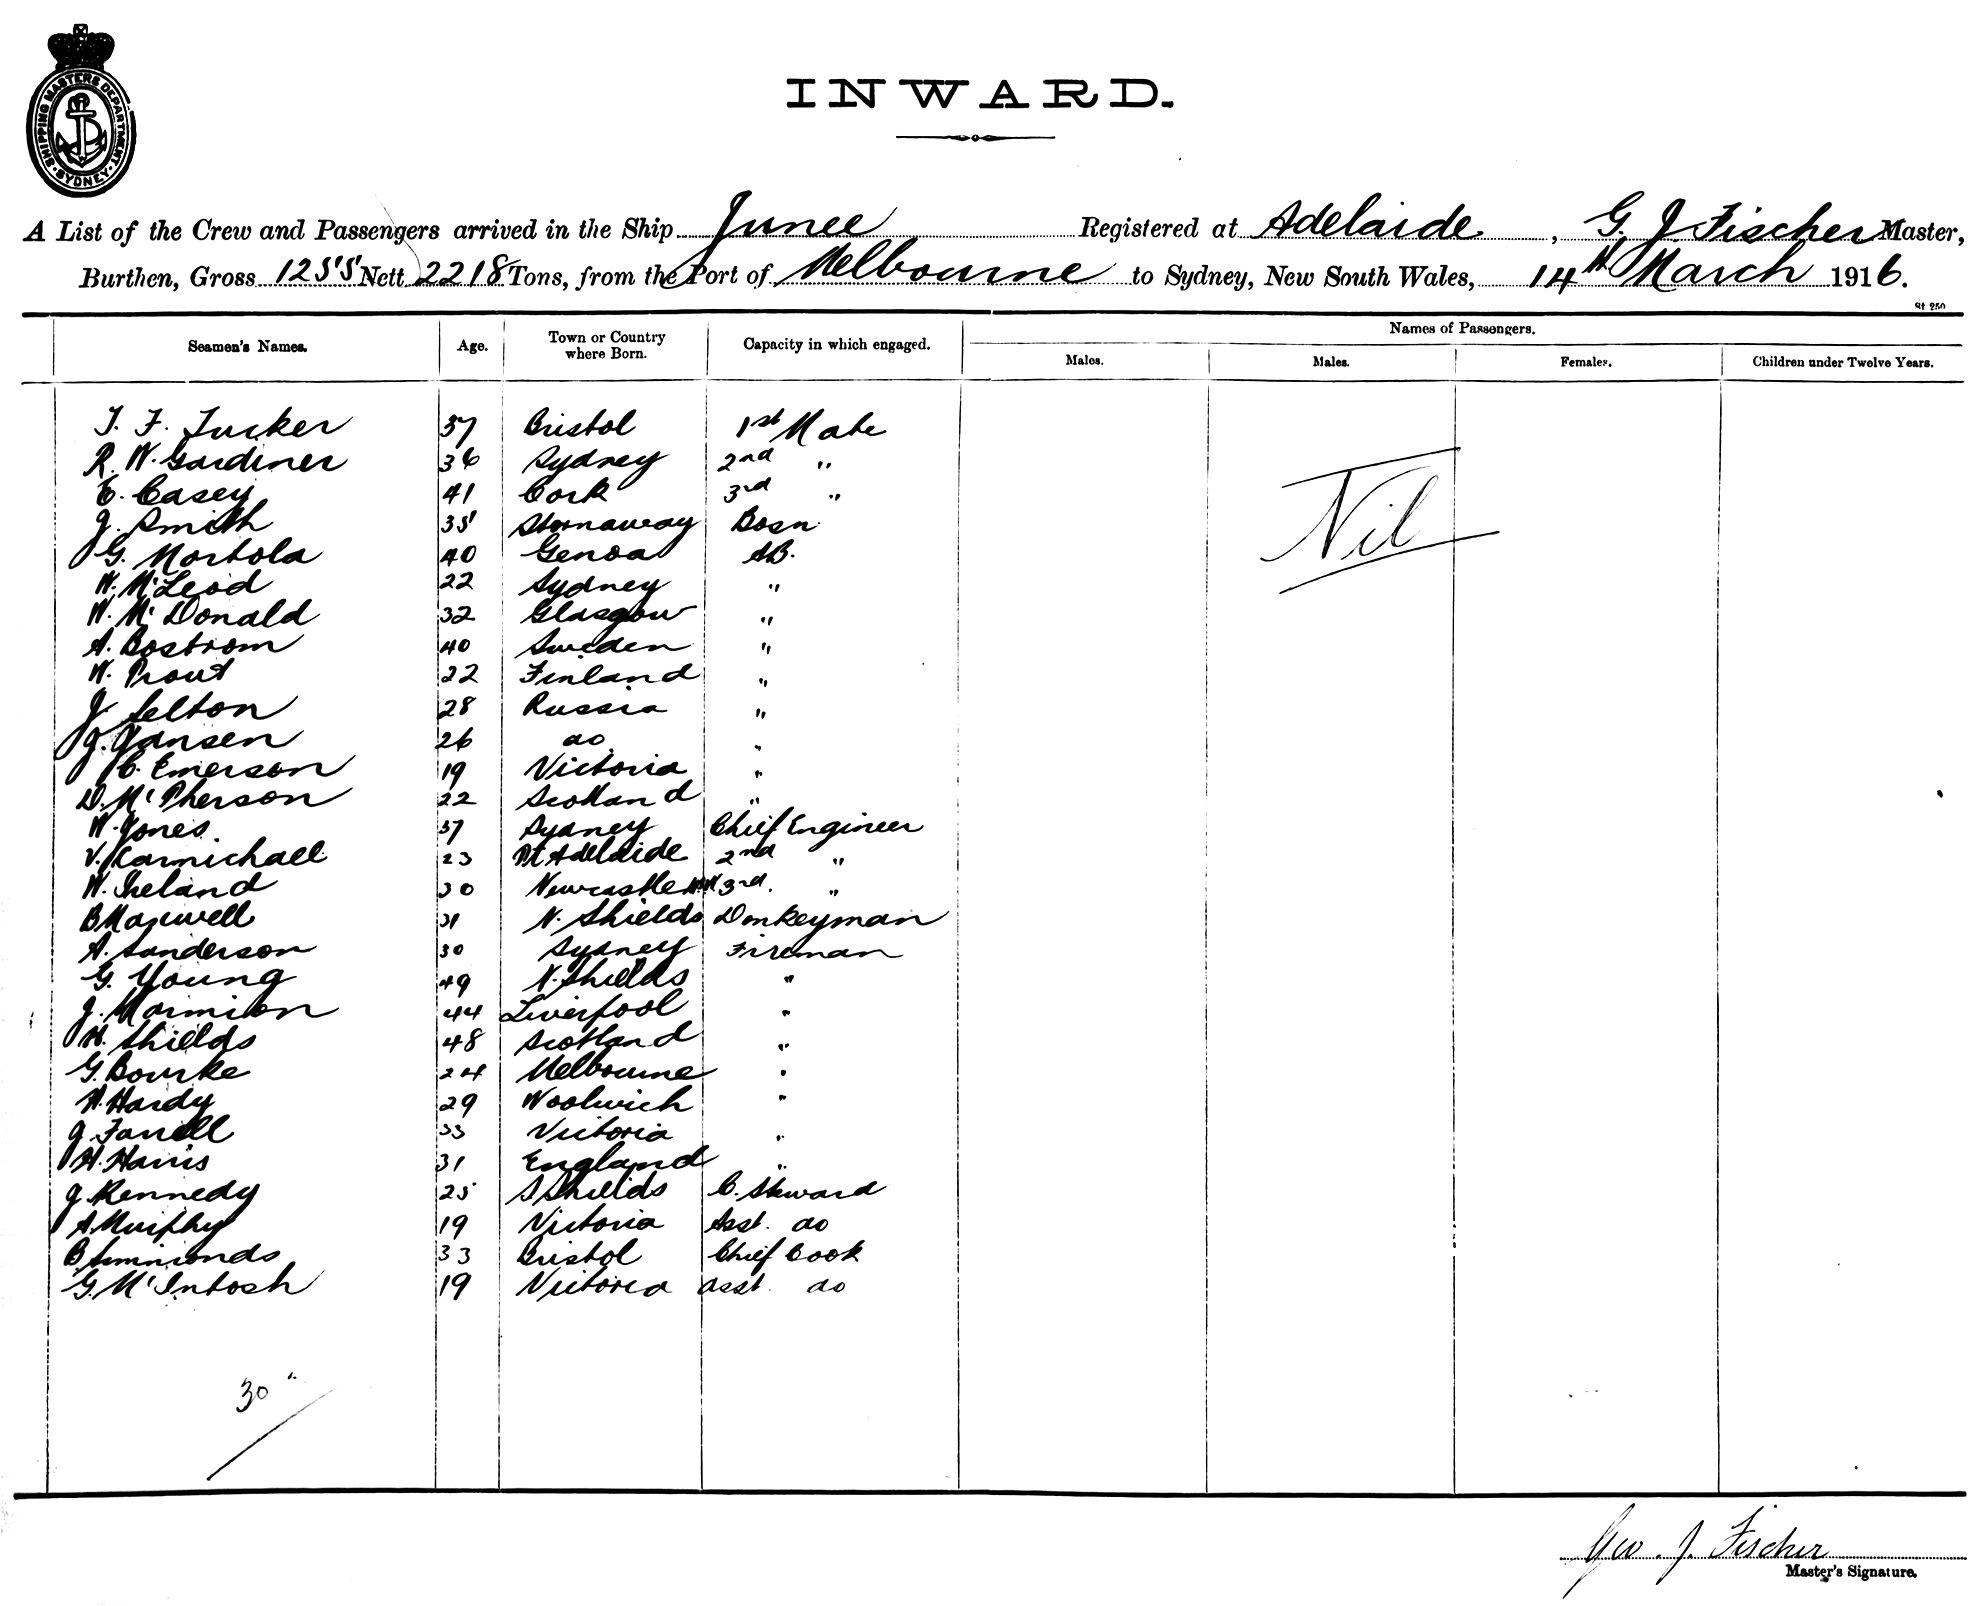 SHIPPING MASTERS DEPARTMENT
SYDNEY
INWARD.
A List of the Crew and Passengers arrived in the Ship Junee Registered at Adelaide, G. J. Fischer Master,
Burthen, Gross 1255 Nett 2218 Tons, from the Port of Melbourne to Sydney, New South Wales, 14th March 1916.
St 250
Seamen's Names. Age. Town or Country where Born. Capacity in which engaged. Names of Passengers.
Males. Males. Females. Children under Twelve Years.
T. F. Tucker 37 Bristol 1st Mate
R. W. Gardiner 36 Sydney 2nd "
E. Casey 41 Cork 3rd "
J. Smith 35 Stornaway Bosn
G. Mortola 40 Genoa AB.
W. McLeod 22 Sydney "
W. McDonald 32 Glasgow "
A. Bostrom 40 Sweden "
W. Prout 22 Finland "
J. Selton 28 Russia "
J. Jansen 26 do "
C. Emerson 19 Victoria "
D. McPherson 22 Scotland "
W. Jones. 37 Sydney Chief Engineer
V. Carmichael 23 Pt Adelaide 2nd "
W. Ireland 30 Newcastle NSW 3rd. "
B Maxwell 31 N. Shields Donkeyman
A. Sanderson 30 Sydney Fireman
G. Young 49 N. Shields "
J. Marmion 44 Liverpool "
H. Shields 48 Scotland "
G. Bourke 24 Melbourne "
H. Hardy 29 Woolwich "
J. Farrell 33 Victoria "
H. Harris 31 England "
J. Kennedy 25 S Shields C. Steward
A. Murphy 19 Victoria Asst. do
B. Simmonds 33 Bristol Chief Cook
G. McIntosh 19 Victoria asst do
Nil
30
Geo. J. Fischer
Master's Signature.